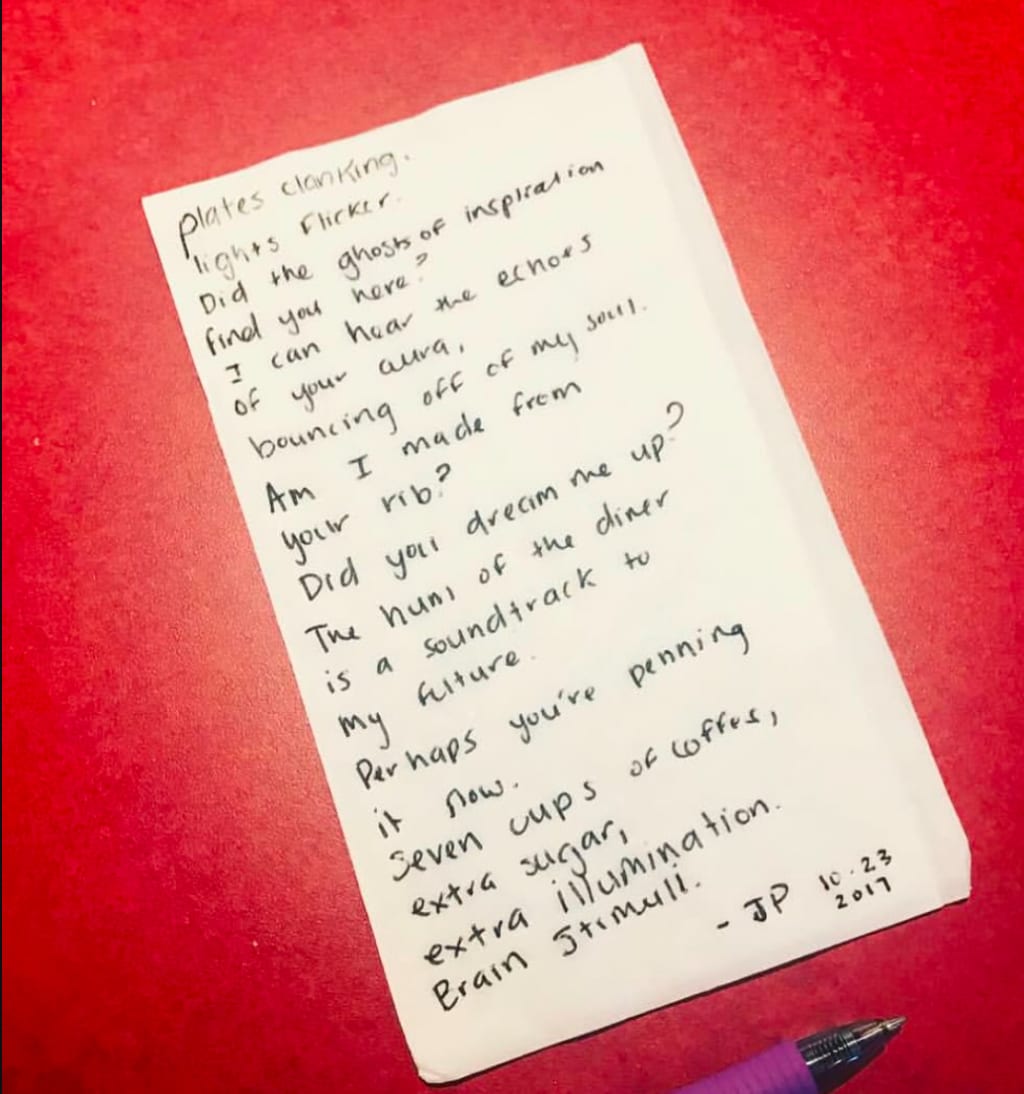 plates clanking.
lights flicker.
Did the ghosts of inspiration
find you here?
I can hear the echoes
of your aura,
bouncing off of my soul.
Am I made from
your rib?
Did you dream me up?
The hum of the diner
is a soundtrack to
my future.
Perhaps you're penning
it now.
Seven cups of coffee,
extra sugar,
extra illumination.
Brain Stimuli.
- JP 10.23
2017